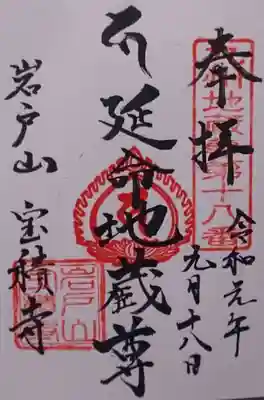 奉拝
第十八番
令和元年
九月十八日
延命地蔵尊
岩戸山 宝積寺
岩戸山